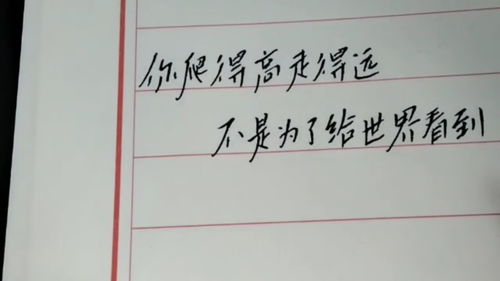 你爬得高走得远
不是为了给世界看到